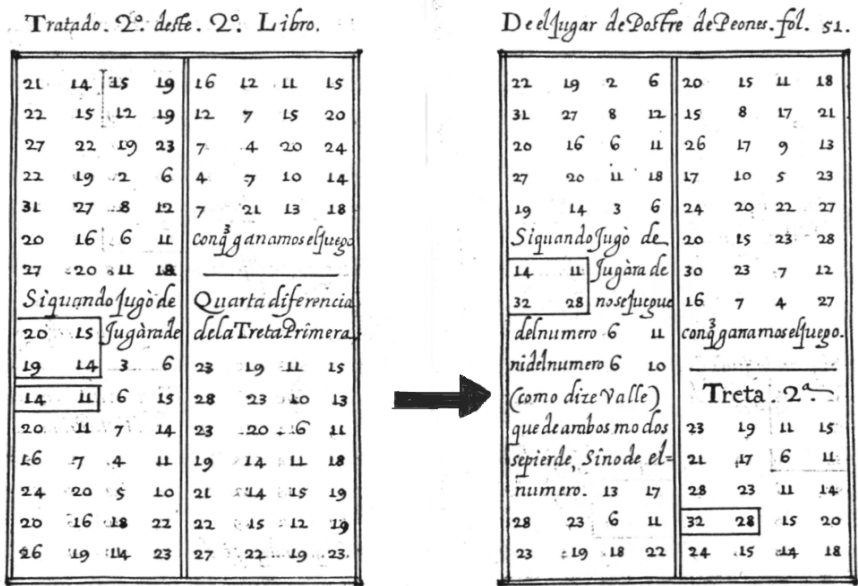 Tratado. 2º. deste. 2º. Libro.
21 14 15 19
22 15 12 19
27 22 19 23
22 19 2 6
31 27 8 12
20 16 6 11
27 20 11 18
Si quando Jugò de
20 15 Jugàra de
19 14 3 6
14 11 6 15
20 11 7 14
16 7 4 11
24 20 5 10
20 16 18 22
26 19 14 23
16 12 11 15
12 7 15 20
7 4 20 24
4 7 10 14
7 21 13 18
conq̃ ganamos el juego
Quarta diferencia
dela Treta Primera.
23 19 11 15
28 23 10 13
23 20 6 11
19 14 11 18
21 14 15 19
22 15 12 19
27 22 19 23
De el Jugar de Postre de Peones. fol. 51.
22 19 2 6
31 27 8 12
20 16 6 11
27 20 11 18
19 14 3 6
Si quando Jugò de
14 11 Jugàra de
32 28 no se juegue
del numero 6 11
ni del numero 6 10
(como dize Valle)
que de ambos modos
se pierde, Sino de el=
numero. 13 17
28 23 6 11
23 19 18 22
20 15 11 18
15 8 17 21
26 17 9 13
17 10 5 23
24 20 22 27
20 15 23 28
30 23 7 12
16 7 4 27
conq̃ ganamos el juego.
Treta. 2ª.
23 19 11 15
21 17 6 11
28 23 11 14
32 28 15 20
24 15 14 18